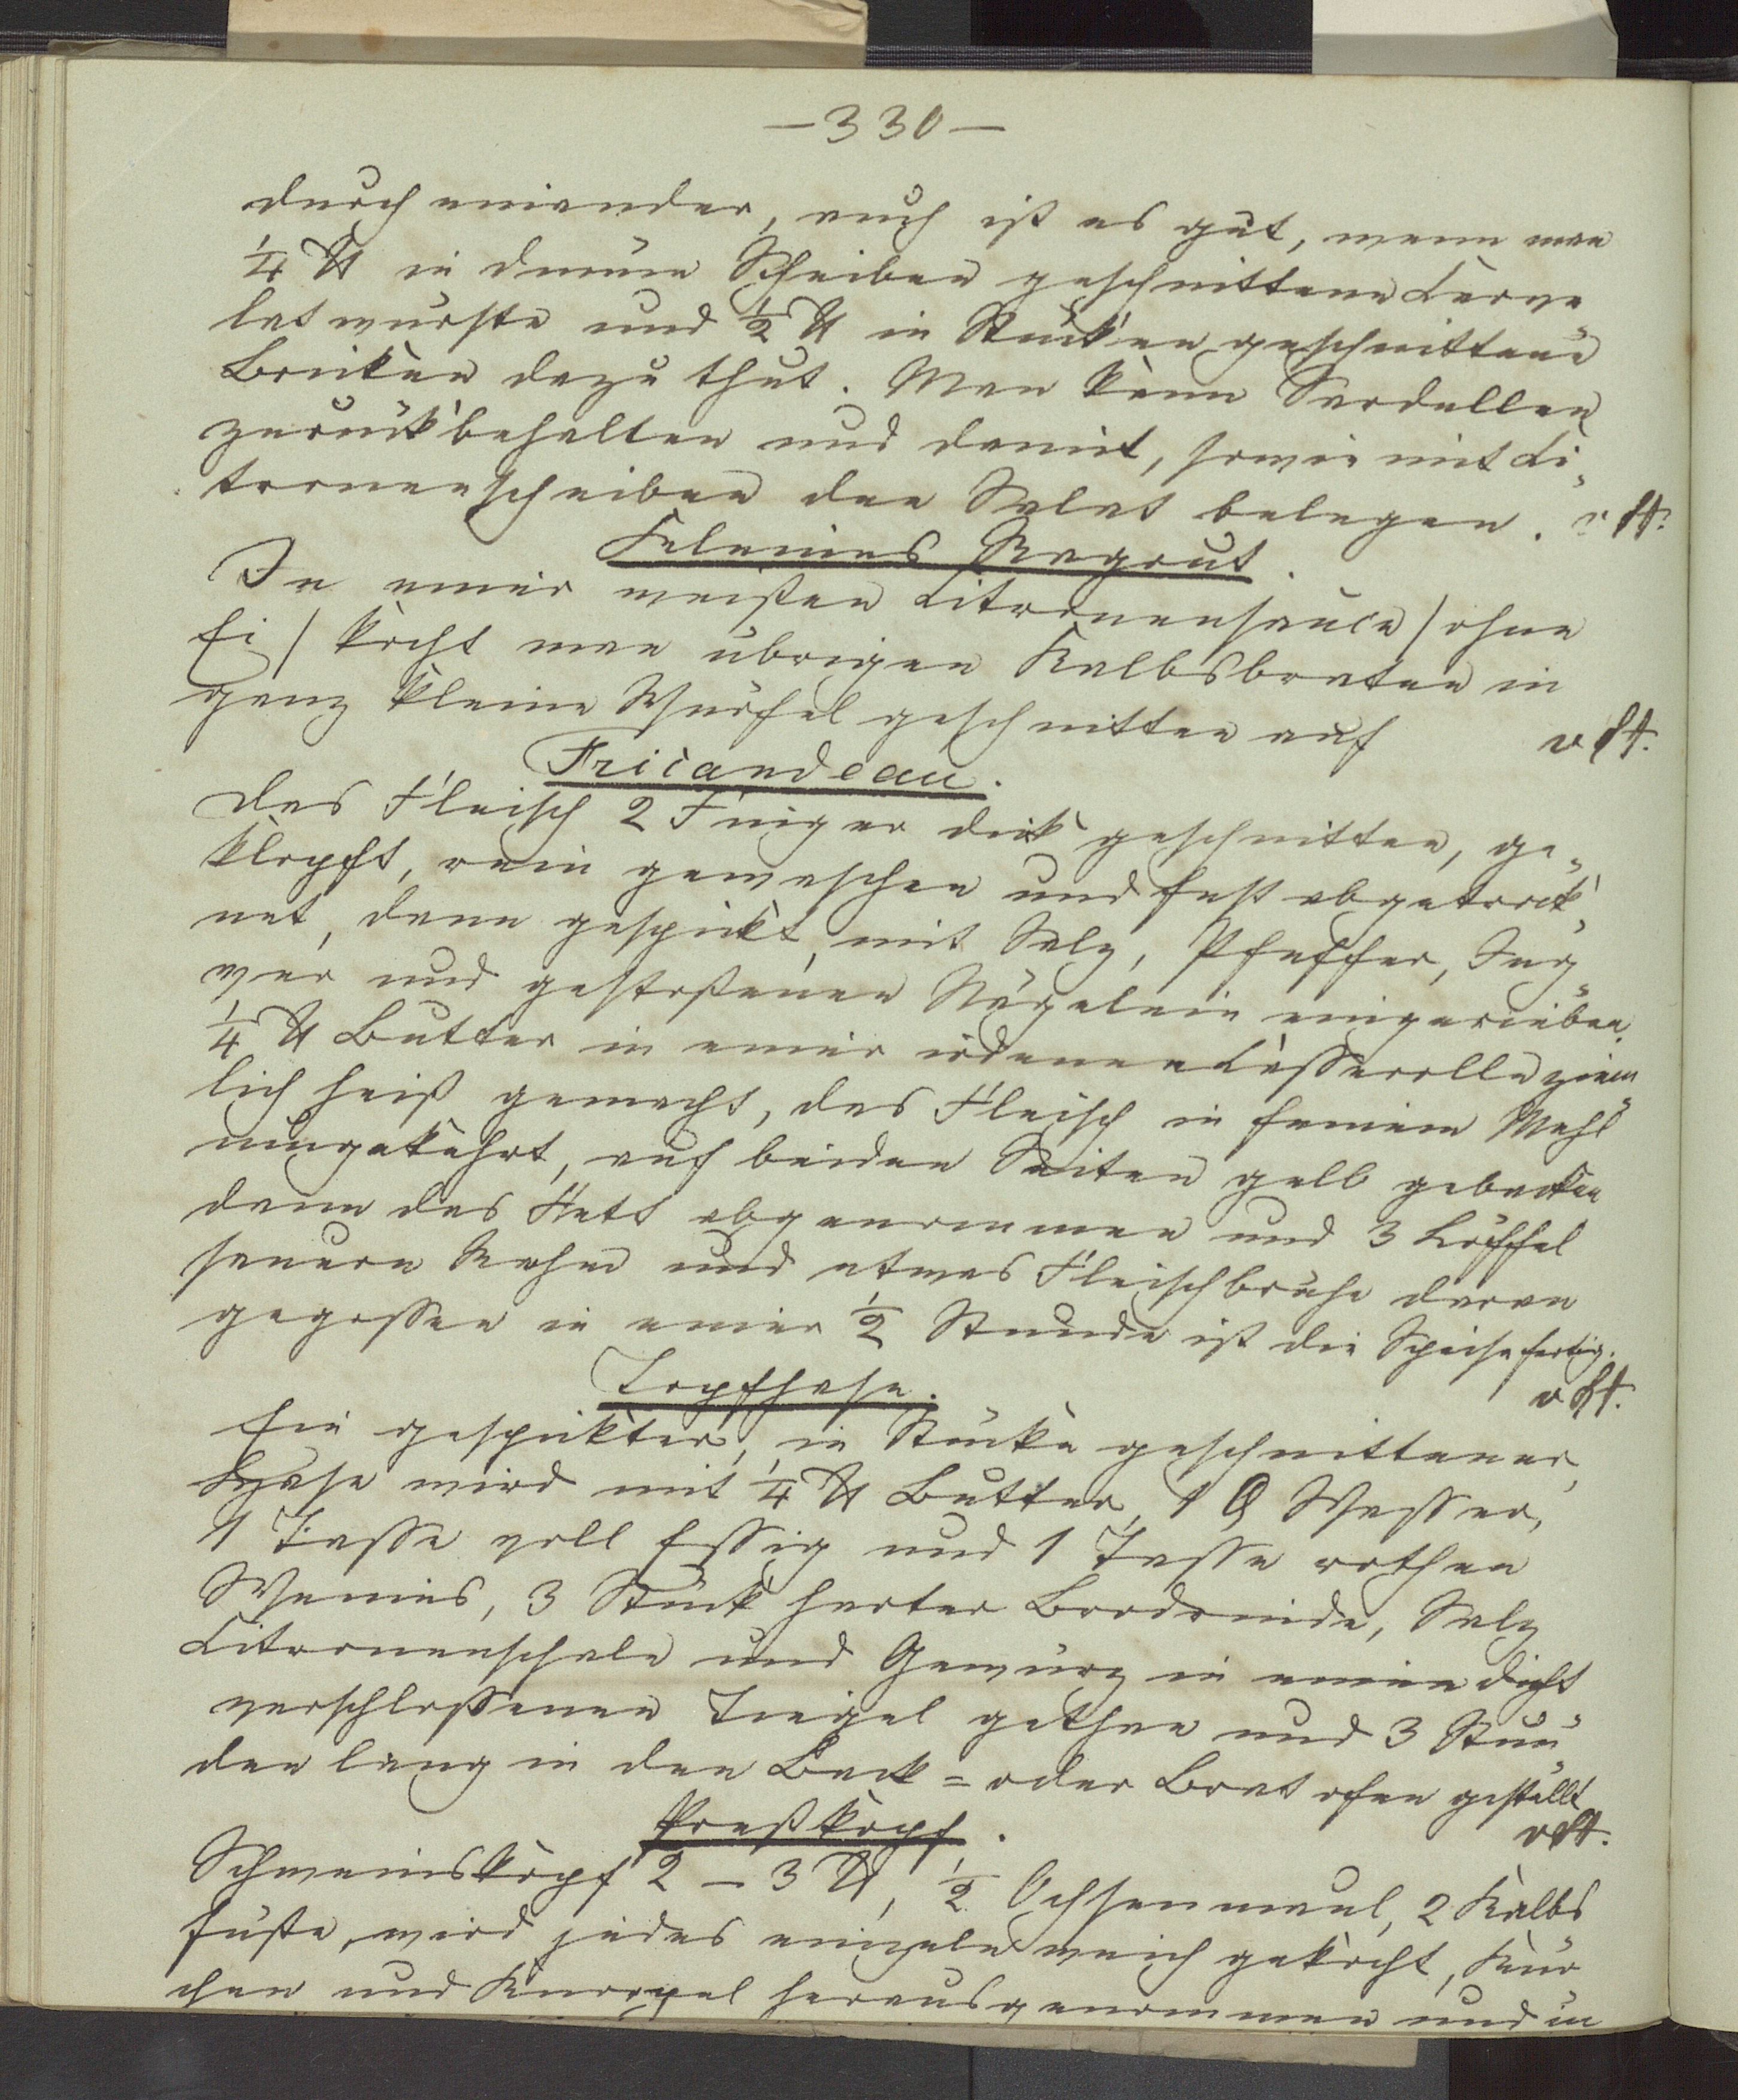 — 330 —
durch einander, auch ist es gut, wenn man
¼ ℔ in dünne Scheiben geschnittene Cerve
latwurste und ½ ℔ in Stücken geschnittene
Bricken dazu thut. Man kann Sardellen
zurückbehalten und damit, sowie mit Ci-
tronenscheiben den Salat belegen.
Kleines Ragout.
In einer weißen Citronensauce / ohne
Ei / kocht man übrigen Kalbsbraten in
ganz kleine Würfel geschnitten auf
Fricandeau.
Das Fleisch 2 Finger dick geschnitten, ge-
klopft, rein gewaschen und fest abgetrock-
net, dann gespickt, mit Salz, Pfeffer, Ing-
wer und gestoßenen Nägelein eingerieben.
¼ ℔ Butter in einer irdenen Casserolle ziem
lich heiß gemacht, das Fleisch in feinem Mehl
umgekehrt, auf beiden Seiten gelb gebacken
dann das Fett abgenommen und 3 Löffel
sauern Rahm und etwas Fleischbrühe daran
gegossen in einer ½ Stunde ist die Speise fertig.
Topfhase.
Ein gespickter, in Stücke geschnittener,
Hase wird mit ¼ ℔ Butter, 1 Q Wasser,
1 Tasse voll Essig und 1 Tasse rothen
Weines, 3 Stück harter Brodrinde, Salz
Citronenschale und Gewürz in einen dicht
verschlossenen Tiegel gethan und 3 Stun-
den lang in den Back= oder Bratofen gestellt
Preßkopf.
Schweinskopf 2 – 3 ℔, ½ Ochsenmaul, 2 Kalbs
füße, wird jedes einzeln weich gekocht, Knö
chen und Knorpel herausgenommen und in